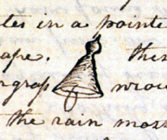 les in a pointe
ape. then
ngrass wrou
the rain mos